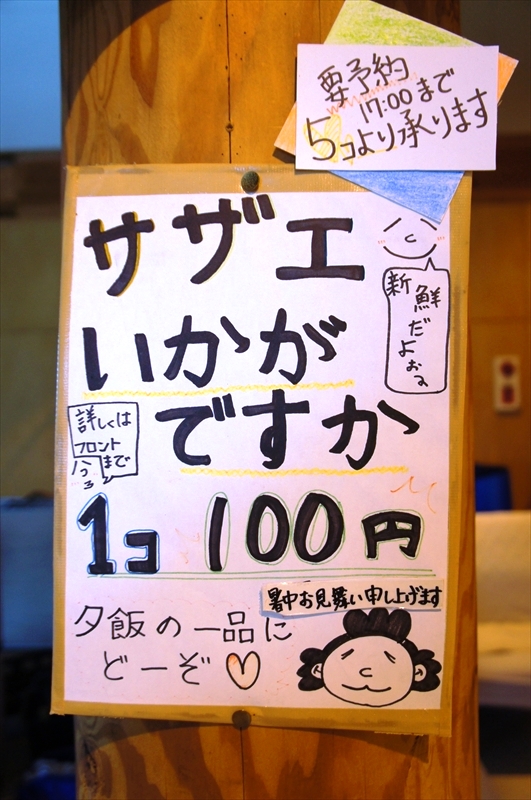 要予約
17:00まで
5コより承ります
サザエ
いかが
ですか
新鮮
だよぉ
詳しくは
フロント
まで
1コ 100円
暑中お見舞い申し上げます
夕飯の一品に
どーぞ♡